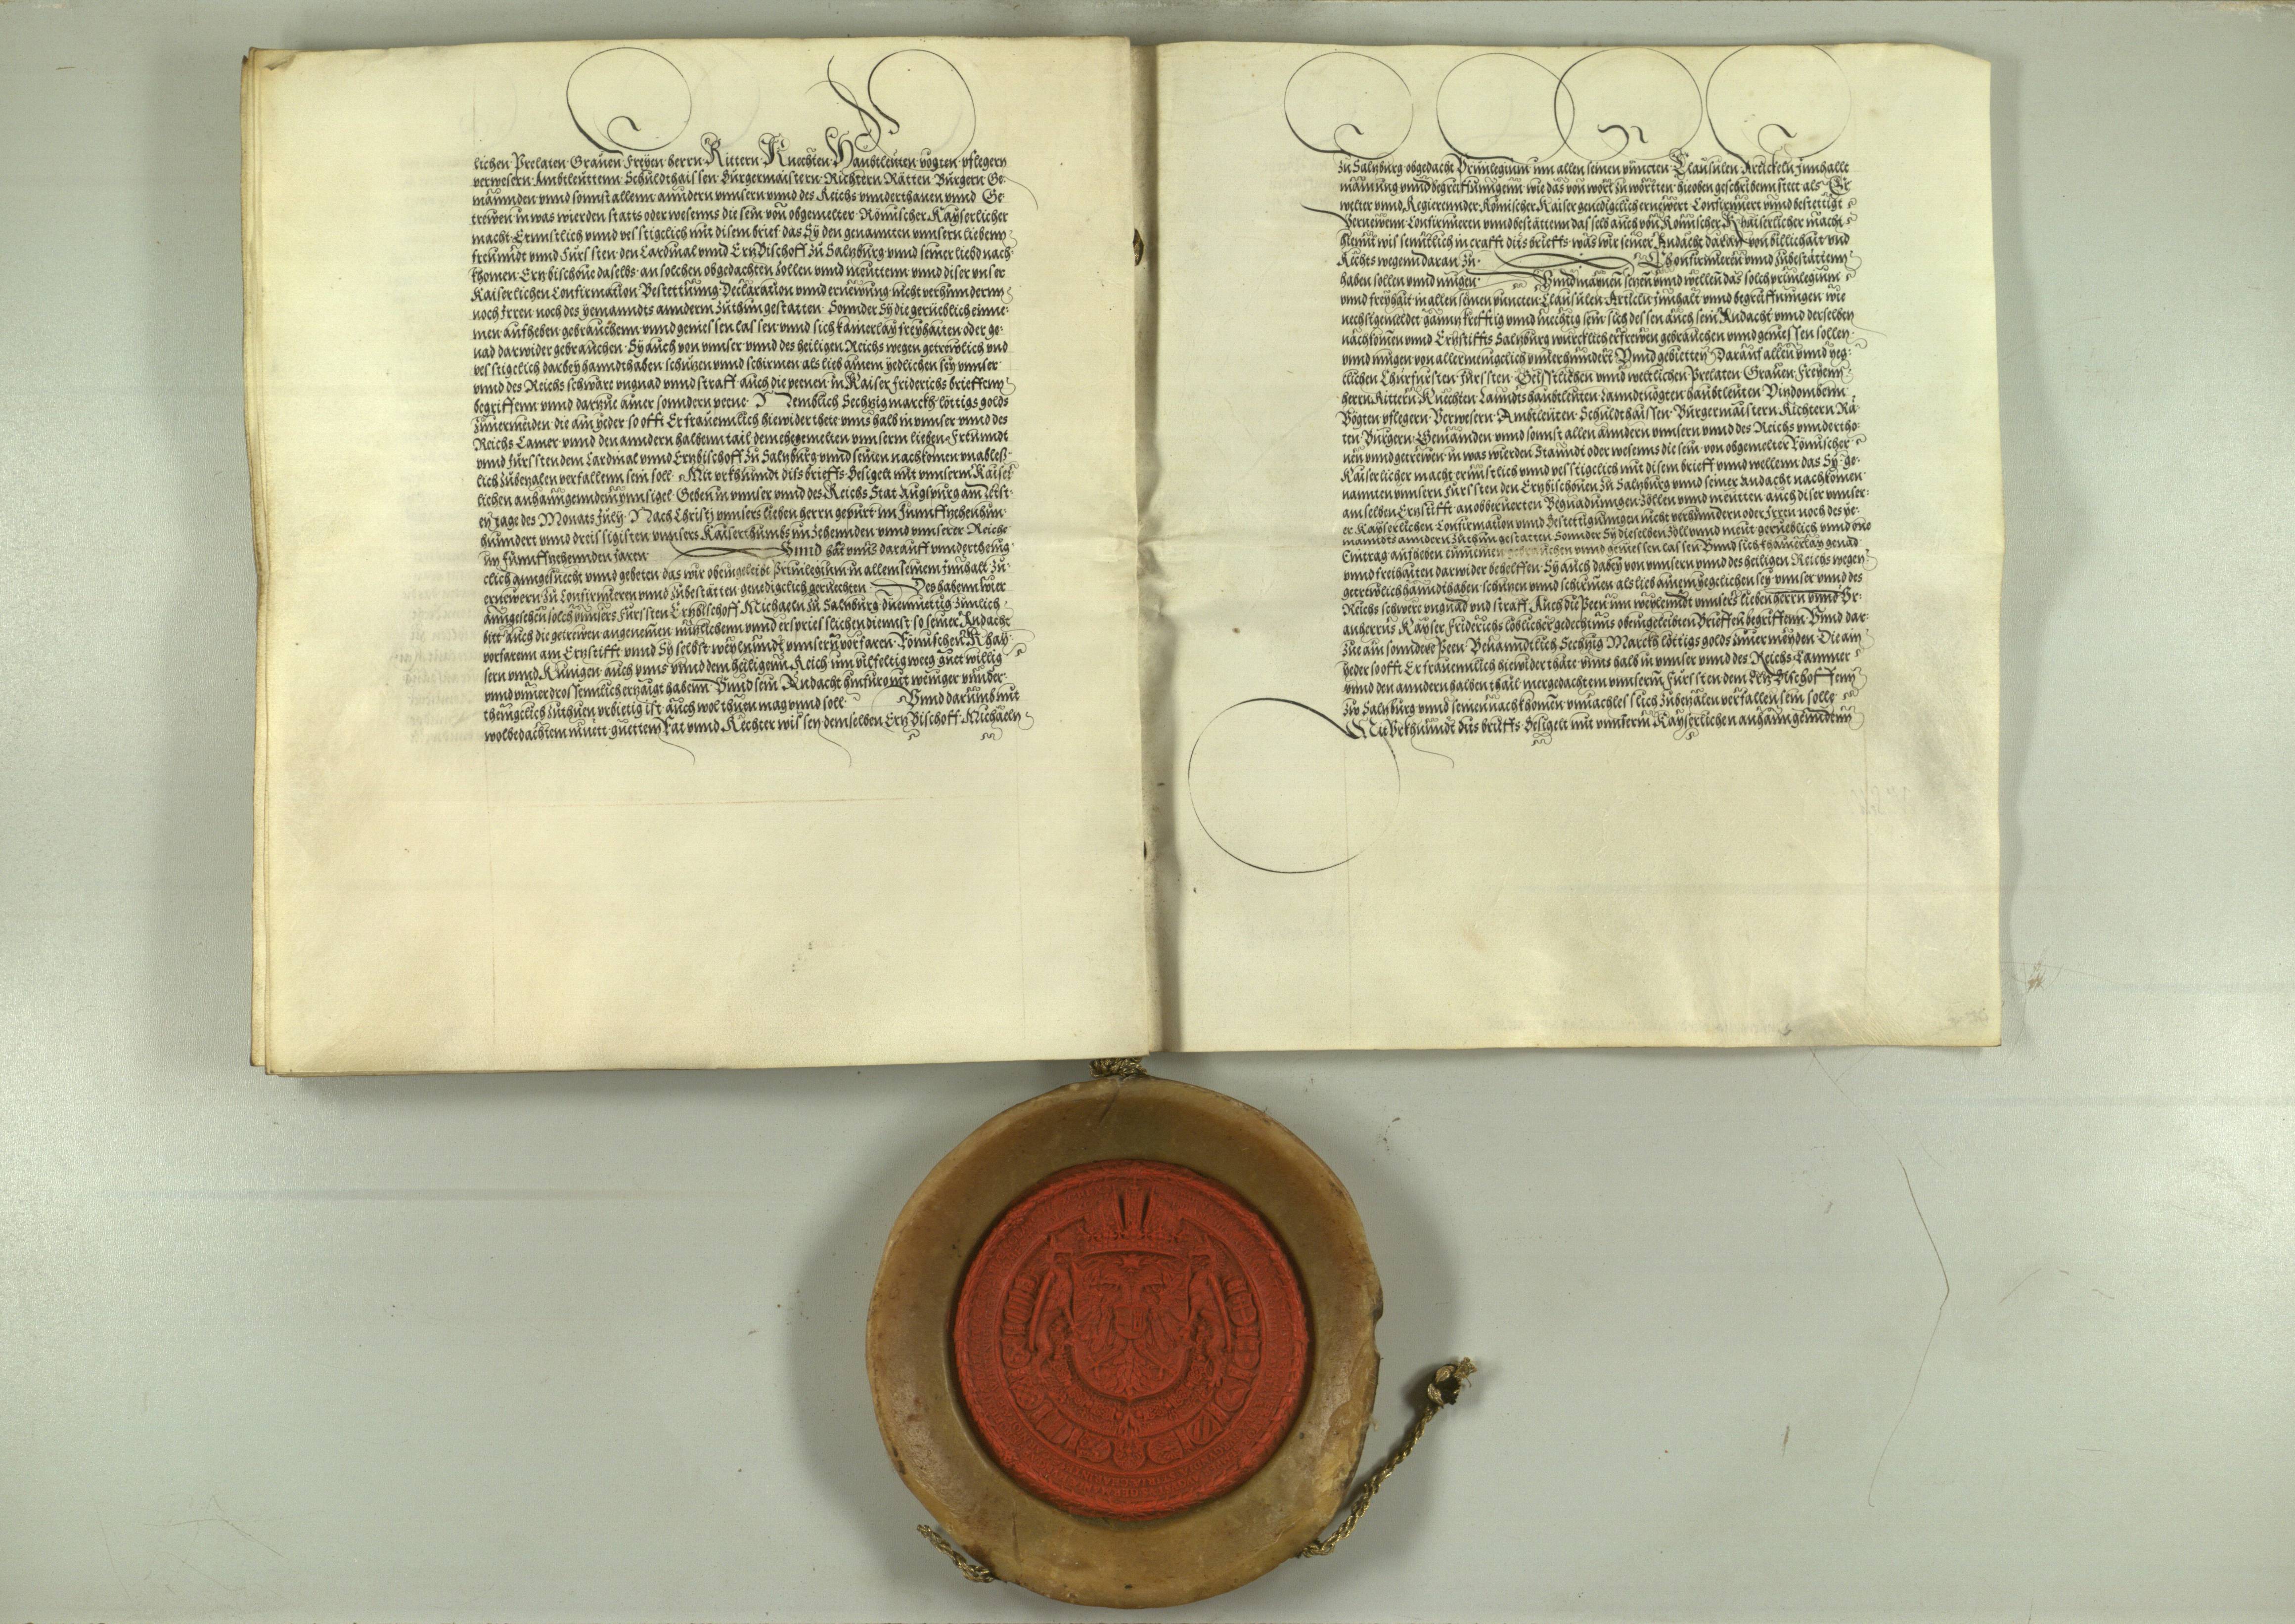 lichen Prelaten Grauen Freyen herrn Rittern Knechten Haubtleuten vogten pflegern
verwesern Ambtleuttenn Schuldthaissen Burgermaistern Richtern Rätten Burgern Ge-
mainnden vnnd sonnst allenn anndern vnnsern vnnd des Reichs vnnderthanen vnnd Ge
trewen in was wierden statts oder wesenns die sein von obgemelter Römischer Kayserlicher
macht Ernnstlich vnnd vesstigelich mit disem brief das Sy den genannten vnnsern liebenn
freundt vnnd Fürssten den Cardinal vnnd ErtzBischoff zu Saltzburg vnnd seiner liebd nach
khomen Ertzbischoue daselbs an solchen obgedachten zollen vnnd meuttenn vnnd diser vnser
Kaiserlichen Confirmation Bestettung Declaration vnnd ernewung nicht verhinndernn
noch Irren noch des yemanndts anndern zuthun gestatten Sonnder Sy die gerueblich einne-
men aufheben gebrauchenn vnnd geniessen lassen vnnd sich kainerlay freyhaiten oder ge-
nad darwider gebrauchen Sy auch von vnnser vnnd des heiligen Reichs wegen getrewlich vnd
vesstigelich darbey hanndthaben schutzen vnnd schirmen als lieb ainem yedlichen sey vnnser
vnnd des Reichs schwäre vngnad vnnd straff auch die peenen in Kaiser friderichs brieffenn
begriffenn vnnd dartzue ainer sonndern peene Nemblich Sechtzig marckh löttigs golds
zuuermeiden die ain yeder so offt Er frauennlich hiewider thete vnns halb in vnnser vnnd des
Reichs Camer vnnd den anndern halbenn tail dem ehegemelten vnnserm lieben Freundt
vnnd fürssten dem Cardinal vnnd Ertzbischoff zu Saltzburg vnnd seinen nachkomen vnableß-
lich zubetzalen verfallenn sein soll Mit vrkhundt dits brieffs Besigelt mit vnnserm Kaiser
lichen anhanngenndem Innsigel Geben in vnnser vnnd des Reichs Stat Augspurg am
tage des Monats July Nach Christj vnnsers lieben herrn gepurt im Funnffzehenhun-
hundert vnnd dreissigisten vnnsers Kaiserthumbs im zehennden vnnd vnnserer Reiche
im funnffzehennden Jaren Vnnd hat vnns darauff vnnderthenig
clich anngesuecht vnnd gebeten das wir obeingeleibt Priuilegium in allem seinem Innhalt zu
ernewern zu Confirmieren vnnd zubestätten genedigclich geruechten Des habenn wier
anngesehen solch vnnsers Fürssten Ertzbischoff Michaeln zu Saltzburg diemuettig zimlich
bitt auch die getrewen angenemen nutzlichenn vnnd erspriesslichen diennst so seiner Andacht
vorfarenn am Ertzstifft vnnd Sy selbst weylenndt vnnsern vorfaren Römischen Khay
sern vnnd Kunigen auch vnns vnnd dem heiligenn Reich inn vilfeltig weeg guet willig
vnnd vnuerdrossennlich ertzaigt habenn Vnnd sein Andacht hinfuro nit weniger vnnder-
thenigelich zuthuen vrbietig ist auch wol thuen mag vnnd soll Vnnd darumb mit
wolbedachtem muett guettem Rat vnnd Rechter wissen demselben ErtzBischoff Michaeln
zu Saltzburg obgedacht Priuilegium inn allen seinen puncten Clausulen Artickeln Innhallt
mainung vnnd begreiffungenn wie das von wort zu wortten hieoben geschribenn stett als Er
welter vnnd Regierennder Römischer Kaiser genedigclich ernewert Confirmiert vnnd bestettigt
Vernewenn Confirmieren vnnd bestättenn das selb auch von Römischer Khaiserlicher macht
hiemit wissenntlich in crafft dits brieffs was wir seiner Andacht daran von billichait vnd
Rechts wegenn daran zu Chonfirmieren vnnd zubestätienn
haben sollen vnnd mugen Vnnd maynen setzen vnnd wellen das solch priuilegium
vnnd freyhait in allen seinen puncten Clausulen Articln Innhalt vnnd begreiffungen wie
nechstgemeldet ganntz krefftig vnnd mechtig sein sich dessen auch sein Andacht vnnd derselben
nachkomen vnnd Ertzstiffts Saltzburg wurcklich erfrewen gebrauchen vnnd geniessen sollen
vnnd mugen von allermenigelich vnuerhindert Vnnd gebietten Darauf allen vnnd yeg-
clichen Churfursten Fürssten Geistlichen vnnd weltlichen Prelaten Grauen Freyenn
herrn Rittern Knechten Lanndtshaubtleuten Lanndtuögten haubtleuten Vitzdombenn
Vögten pflegern Verwesern Ambtleuten Schuldthaissen Burgermaistern Richtern Rä
ten Burgern Gemainden vnnd sonnst allen anndern vnnsern vnnd des Reichs vndertho-
nen vnnd getrewen in was wierden Stanndt oder wesenns die sein von obgemelter Römischer
Kaiserlicher macht ernnstlich vnnd vesstigelich mit disem brieff vnnd wellenn das Sy ge-
nannten vnnsern Fürssten den Ertzbischouen zu Saltzburg vnnd seiner Andacht nachkomen
am selben Ertzstifft an obberuerten Begnadungen zöllen vnnd meutten auch diser vnnser
er Kayserlichen Confirmation vnnd Bestettigungen nicht verhindern oder Irren noch des ye-
manndts anndern zuthun gestatten Sonnder Sy dieselben Zöll vnnd meut gerueblich vnnd one
Eintrag aufheben einnemen gebrauchen vnnd geniessen lassen Vnnd sich khainerlay genad
vnnd freihaiten darwider behelffen Sy auch dabey von vnnsern vnnd des heiligen Reichs wegen
getrewlich hanndthaben schutzen vnnd schirmen als lieb ainem yegclichen sey vnnser vnnd des
Reichs schwere vngnad vnd straff Auch die Peen inn weylendt vnnsers lieben herrn vnnd Vr-
anherrns Kayser Friderichs löblicher gedechtnus obeingeleibten Brieffen begriffenn Vnnd dar-
zue ain sonndere Peen Benanndtlich Sechtzig Marckh löttigs golds zuuermeyden Die ain
yeder so offt Er frauennlich hiewider thätt vnns halb in vnnser vnnd des Reichs Cammer
vnnd den anndern halben thail mergedachtem vnnserm Fürssten dem Ertz Bischoffenn
zw Saltzburg vnnd seinen nachkhomen vnnachlesslich zubetzalen verfallen sein solle
Mit Vrkhundt dits brieffs Besigelt mit vnnserm Kayserlichen anhanngendtnn